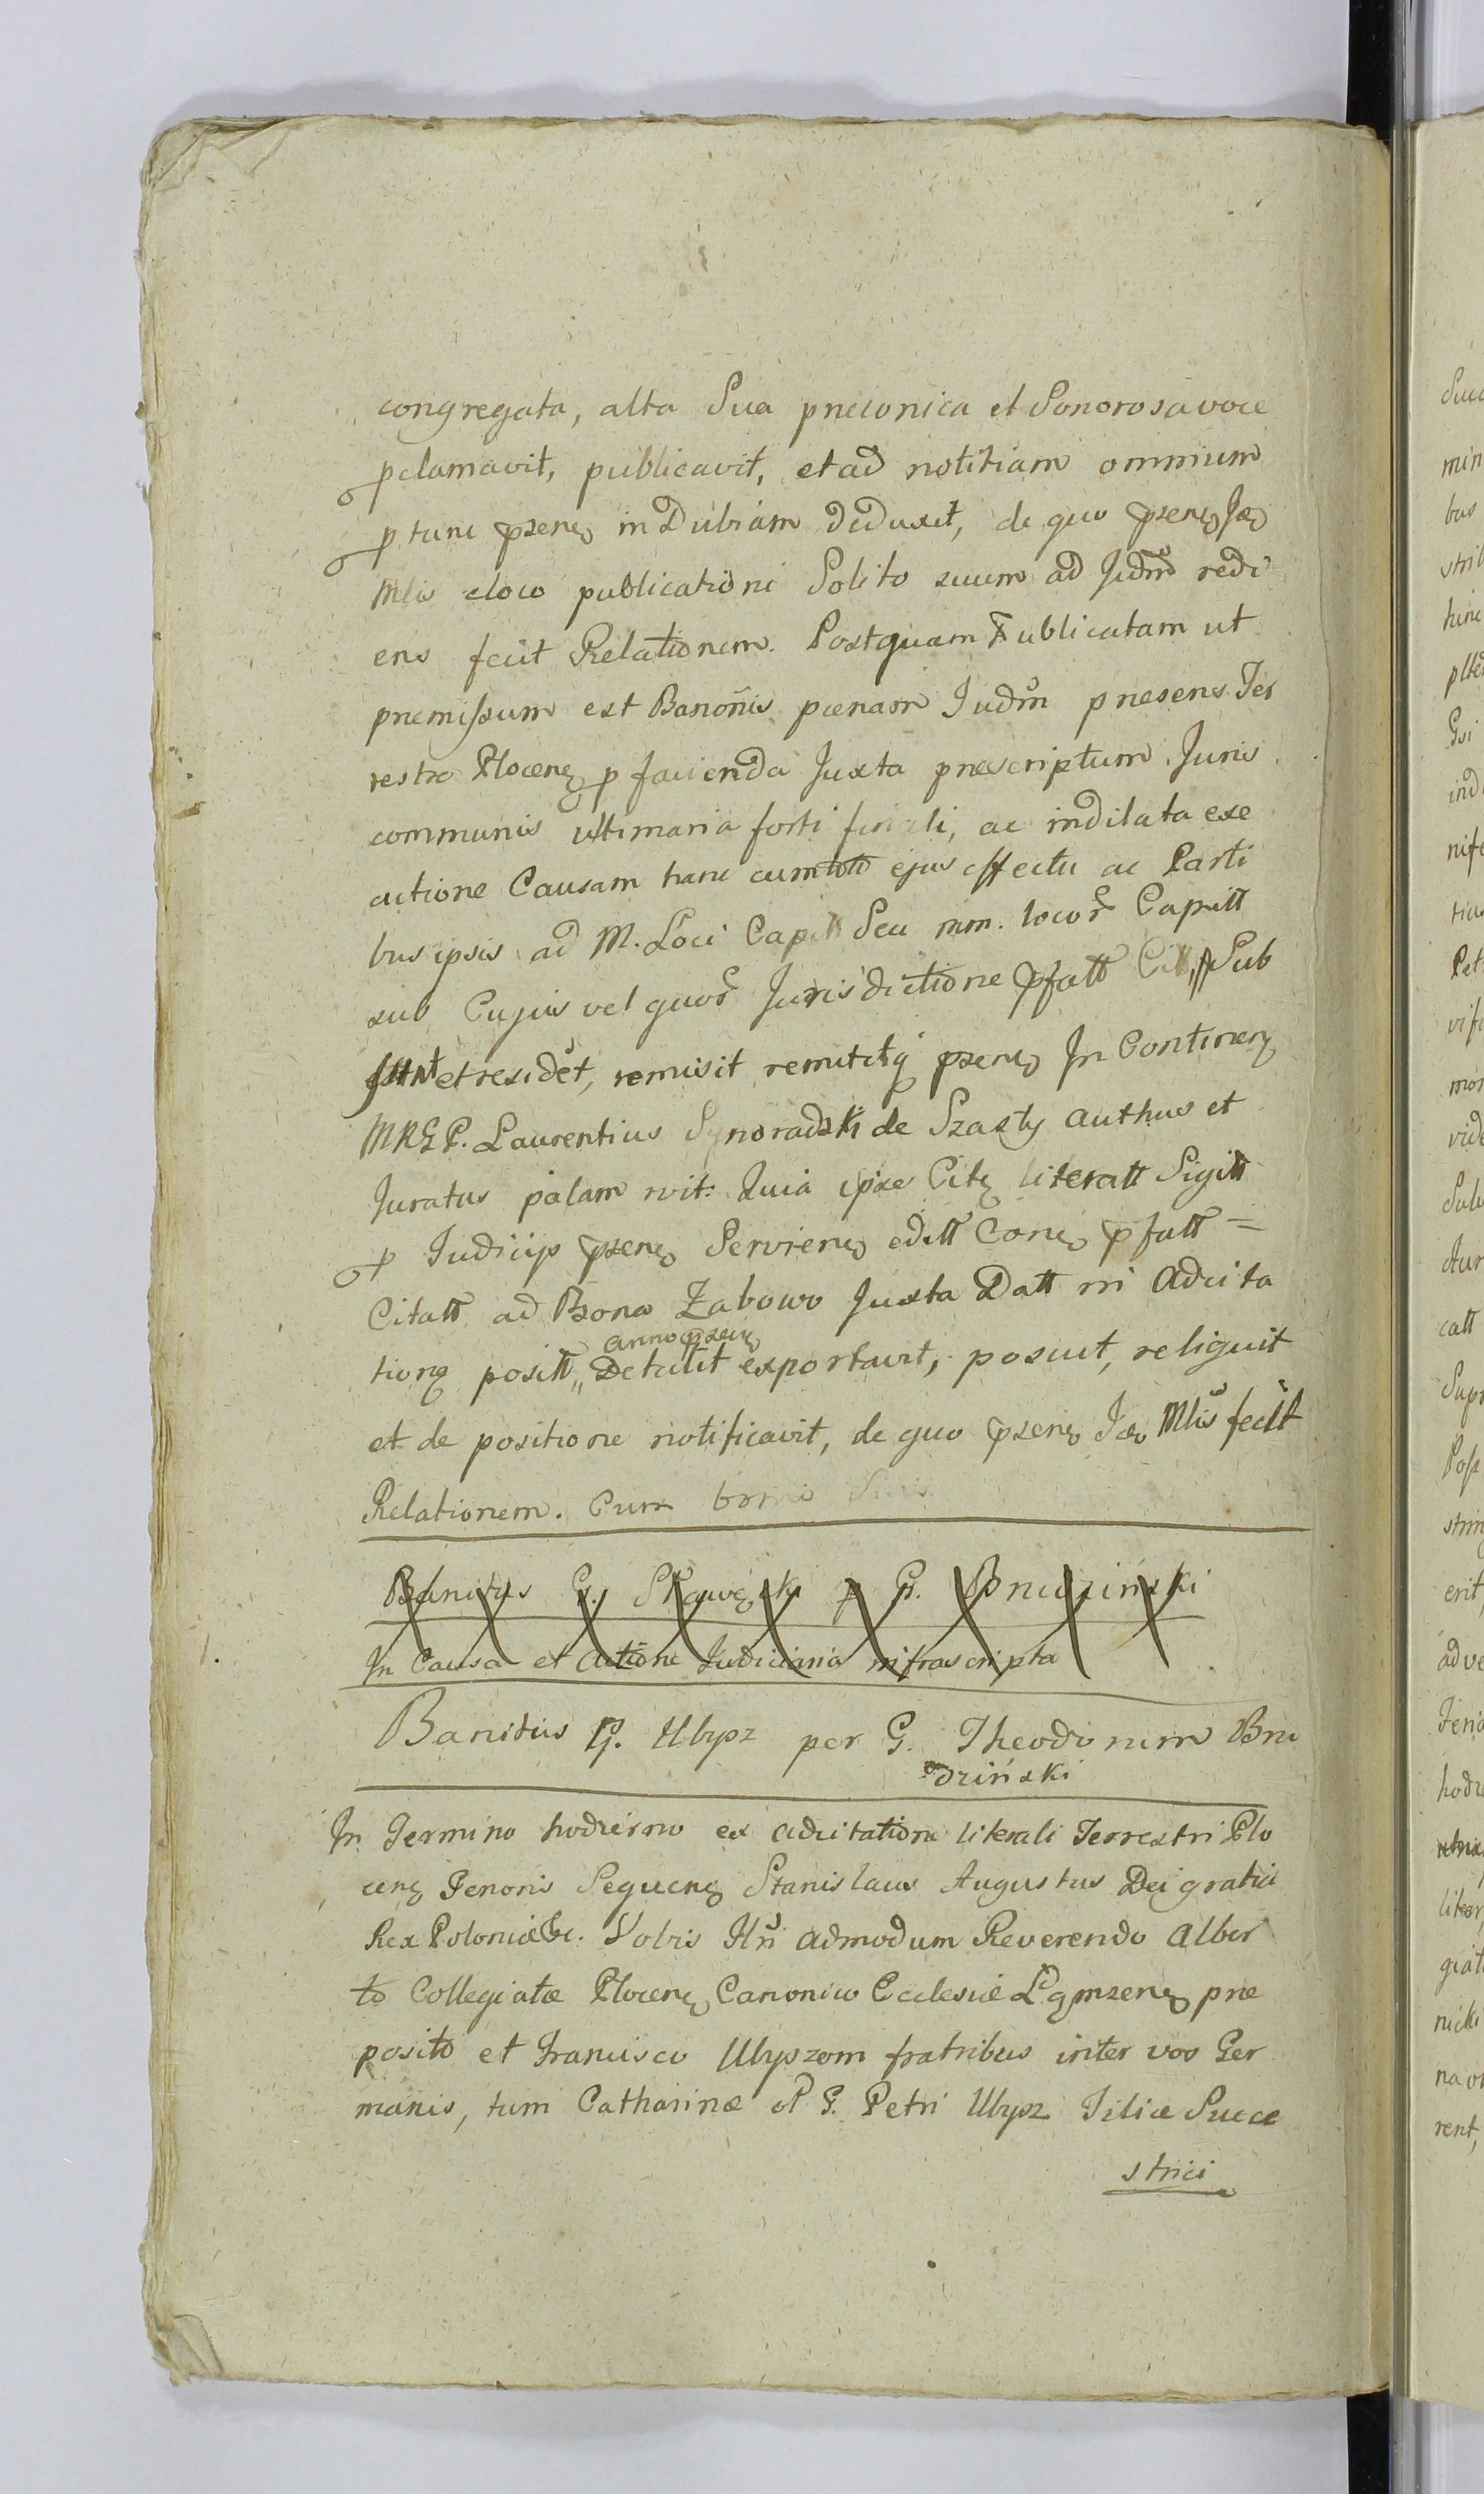 congregata, alta Sua preconica et Sonorosa voce
pclamavit, publicavit, et ad notitiam omnium
p tunc psene in Dubiam deduxit, de quo psene Jęo
Mlis eloco publicationi Solito suum ad Judm redi
ens fecit Relationem. Postquam Publicatam ut
premissum est Banonis pœnam Judm presens Ter
restre Plocen p facienda Juxta prescriptum Juris
communis ultimaria forti finali, ac indilata exe
cutione Causam hanc cum toto ejus effectu ac Parti
bus ipsis ad M. Loci Capitt Seu mm. locor Capitt
sub Cujus vel quor Jurisdictione pfatt Citt, Sub
et residet, remisit remititq psene In Continen
MRGP. Laurentius Synoradzki de Szasty authus et
Juratus palam rvit: Quia ipse Cite literatt Sigitt
p Judicys psene Serviene editt Cone pfatt =
Citatt ad Bona Zabowo Juxta Datt in Adcita
anno psenti
tione positt,, Detulit exportavit, posuit, reliquit
et de positione notificavit, de quo psene Jęo Mlis fecit
Relationem. Cum
Banitus G. Skawęski p G. Brudziński
In Causa et Actione Judiciaria infrascripta
Banitus G. Ulysz per G. Theodorum Bru
dziński
In Termino hodierno ex adcitatione literali Terrestri Plo
cene Tenoris Sequene Stanislaus Augustus Dei gratia
Rex Poloniæ &c. Vobis Iln admodum Reverendo Alber
to Collegiatæ Plocene Canonico Ecclesiæ præ
posito et Francisco Ulyszom fratribus inter vos Ger
manis, tum Catharinæ G. Petri Ulysz Filiæ Succe
strici